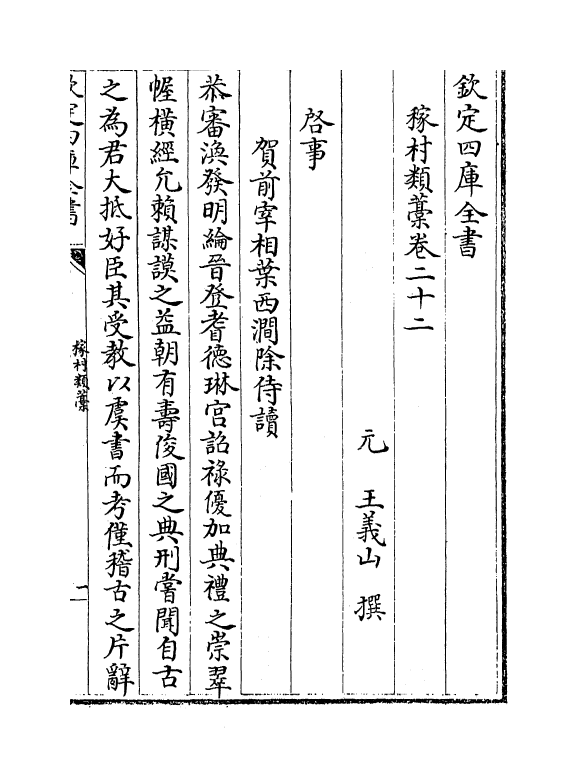 欽定四庫全書
稼村類藁卷二十二
元　王義山　撰
啓事
賀前宰相葉西澗除侍讀
恭審渙發明綸晉登耆德琳宮詔祿優加典禮之崇翠
幄橫經允賴謀謨之益朝有壽俊國之典刑嘗聞自古
之為君大抵好臣其受教以虞書而考僅稽古之片辭
欽定四庫全書
稼村類藁
一